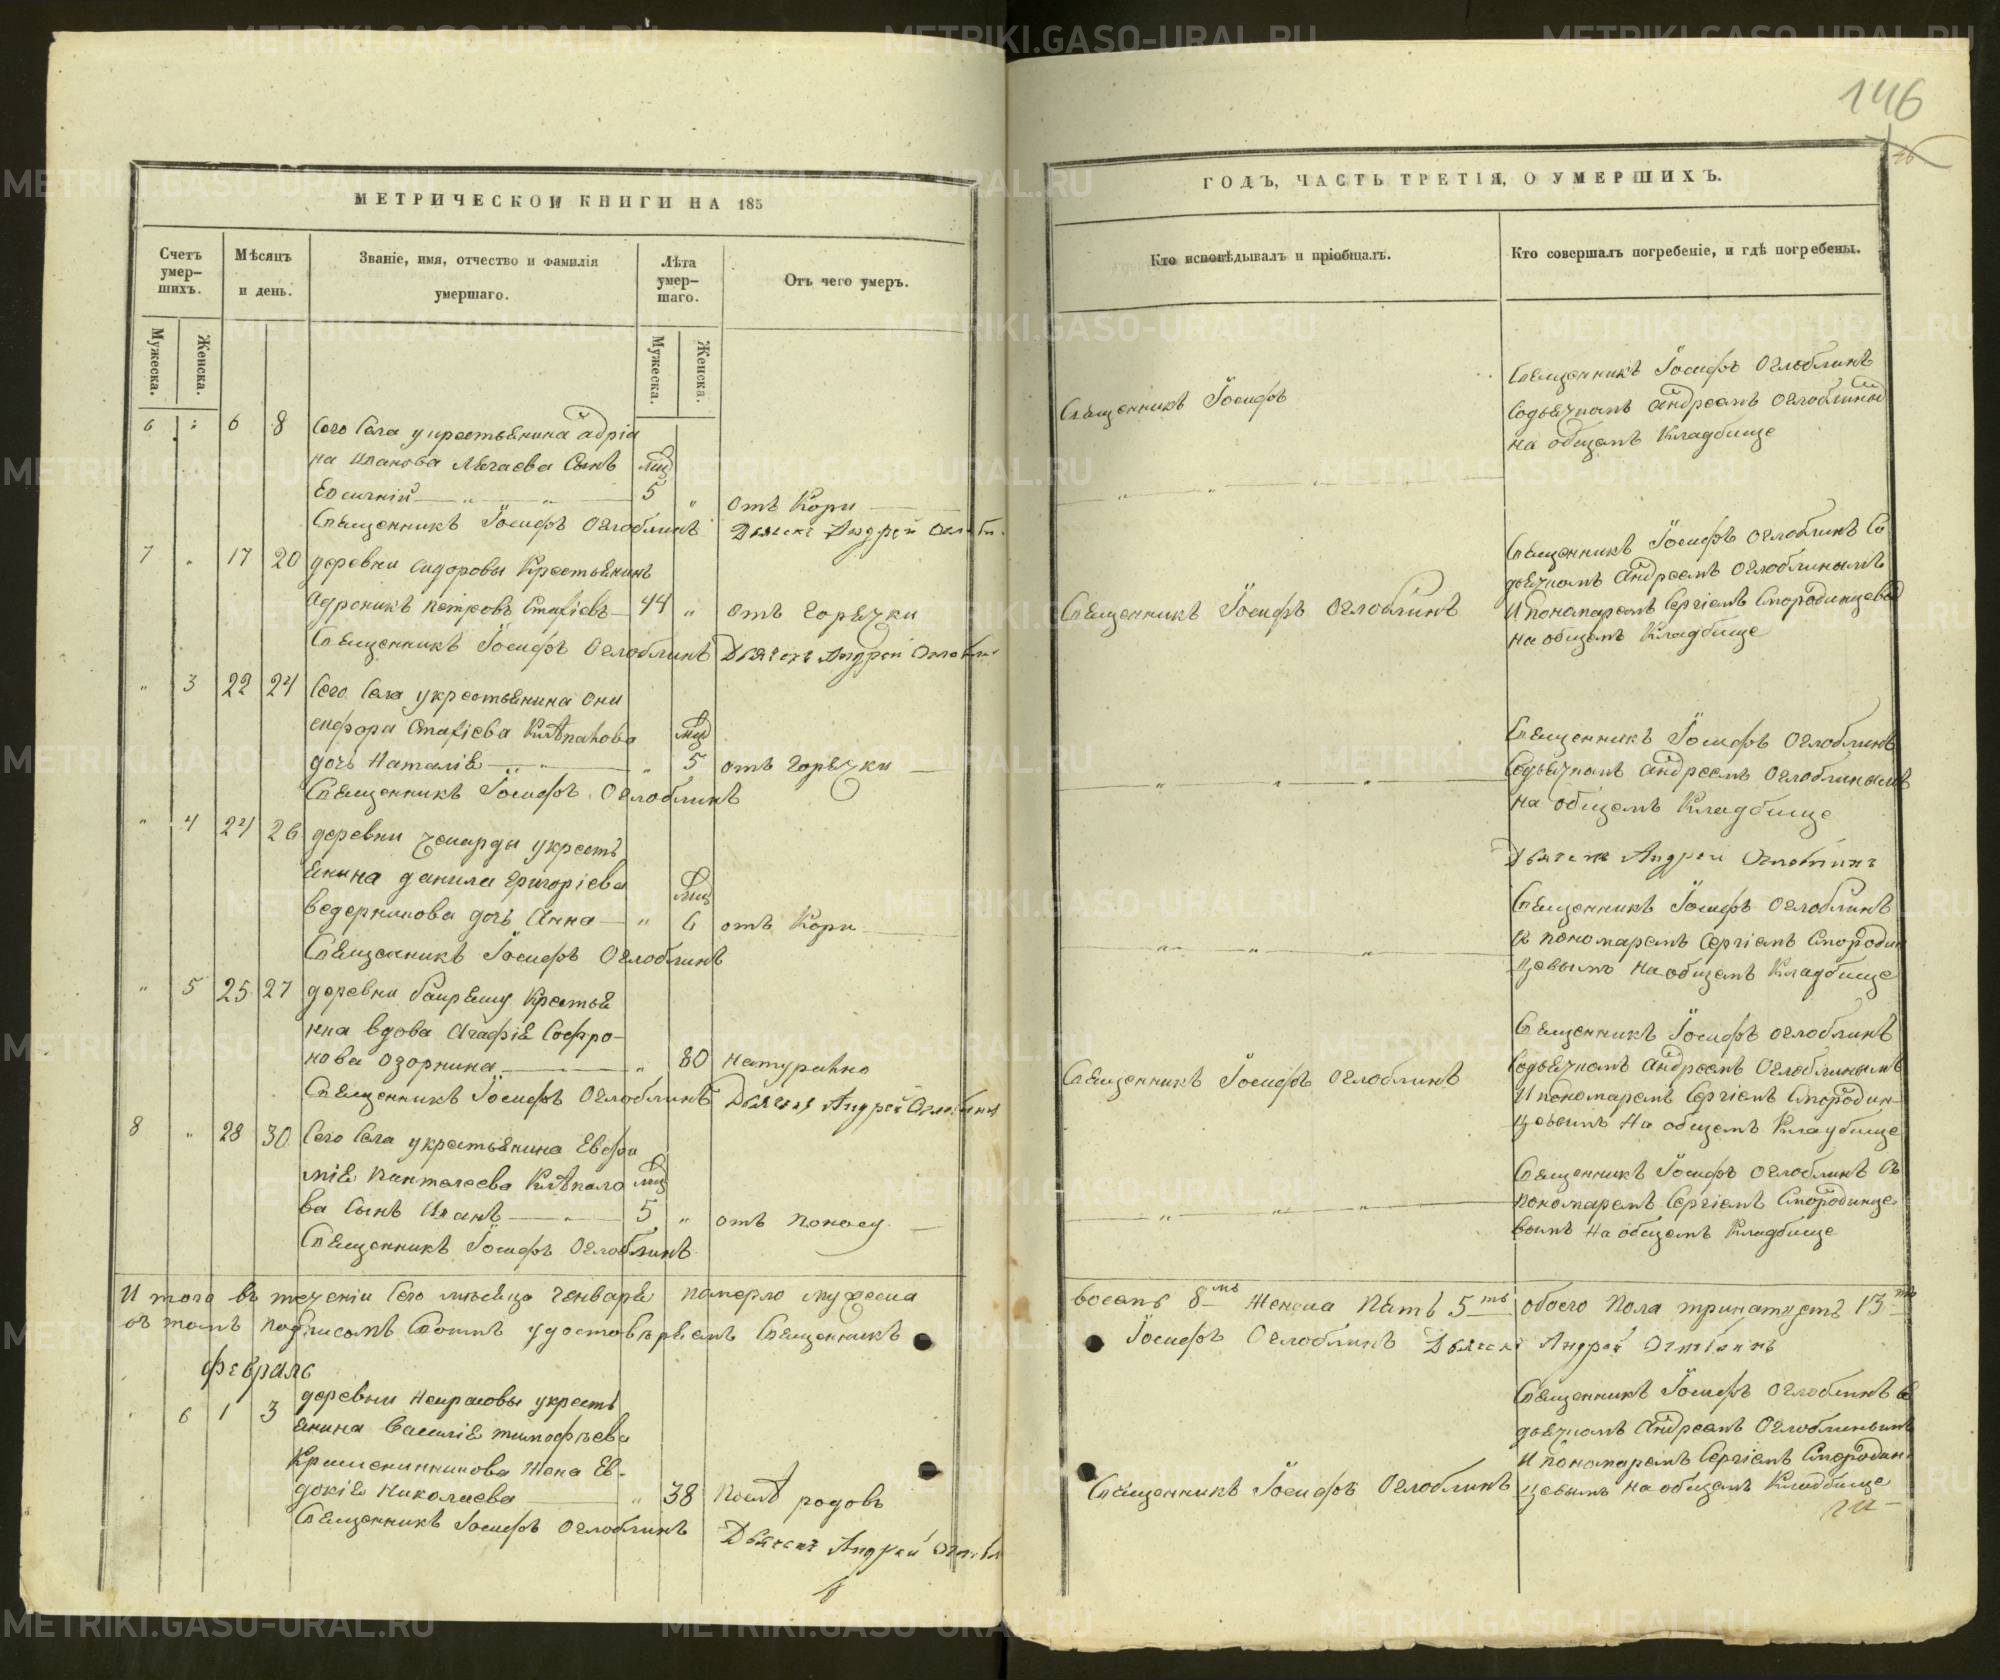 МЕТРИЧЕСКОЙ КНИГИ НА 185
Счетъ умер-шихъ.
Мѣсяцъ и день.
Званіе, имя, отчество и фамилія умершаго.
Лѣта умер-шаго.
Отъ чего умеръ.
Мужеска.
Женска.
Мужеска.
Женска.
6 6 8 Сего Села у крестьянина Адріа
на Иванова сынъ мц
5
отъ Кори
Священникъ Іосифъ Оглоблинъ Дьячекъ Андрей
7 17 20 деревни Сидоровы Крестьянинъ
Петровъ 44 отъ горячки
Священникъ Іосифъ Оглоблинъ Дьячекъ Андрей
3 22 24 Сего Села у крестьянина Они
сифора мц
дочь Наталія 5 отъ горячки
Священникъ Іосифъ Оглоблинъ
4 24 26 деревни у кресть
янина Данила Григоріева мц
Ведерникова дочь Анна 6 отъ Кори
Священникъ Іосифъ Оглоблинъ
5 25 27 деревни Крестья
нка вдова Агафія Софро-
нова Озорнина 80 натурально
Священникъ Іосифъ Оглоблинъ Дьячекъ Андрей
8 28 30 Сего Села у крестьянина Евфи
мія Пантелеева мц
ва Сынъ Иванъ 5 отъ поносу
Священникъ Іосифъ Оглоблинъ
Итого въ теченіи Сего мѣсяца Генваря померло мужеска
въ томъ подписомъ удостовѣряемъ Священникъ
Февраль
6 1 3 деревни Некрасовы у кресть
янина Василія Тимофѣева
жена Ев-
докія Николаева 38 послѣ родовъ
Священникъ Іосифъ Оглоблинъ
Дьячекъ Андрей
146
ГОДЪ, ЧАСТЬ ТРЕТІЯ, О УМЕРШИХЪ.
Кто исповѣдывалъ и пріобщалъ.
Кто совершалъ погребеніе, и гдѣ погребены.
Священникъ Іосифъ
Священникъ Іосифъ Оглоблинъ
Содьячкомъ Андреемъ
на общемъ Кладбище
Священникъ Іосифъ Оглоблинъ Со
дьячкомъ Андреемъ Оглоблинымъ
Священникъ Іосифъ Оглоблинъ
И пономаремъ Сергіемъ
на общемъ Кладбище
Священникъ Іосифъ Оглоблинъ
Содьячкомъ Андреемъ Оглоблинымъ
на общемъ Кладбище
Дьячекъ Андрей Оглоблинъ
Священникъ Іосифъ Оглоблинъ
Съ пономаремъ Сергіемъ Смородин
цевымъ на общемъ Кладбище
Священникъ Іосифъ Оглоблинъ
Священникъ Іосифъ Оглоблинъ
Содьячкомъ Андреемъ Оглоблинымъ
И пономаремъ Сергіемъ Смородин-
цевымъ на общемъ Кладбище
Священникъ Іосифъ Оглоблинъ Съ
пономаремъ Сергіемъ Смородинце-
вымъ на общемъ Кладбище
восемь 8мь Женска пять 5ть обоего пола тринатцеть 13ть
Іосифъ Оглоблинъ Дьячекъ Андрей
Священникъ Іосифъ Оглоблинъ Со
дьячкомъ Андреемъ Оглоблинымъ
И пономаремъ Сергіемъ Смородин-
Священникъ Іосифъ Оглоблинъ
цевымъ на общемъ Кладбище
METRIKI.GASO-URAL.RU